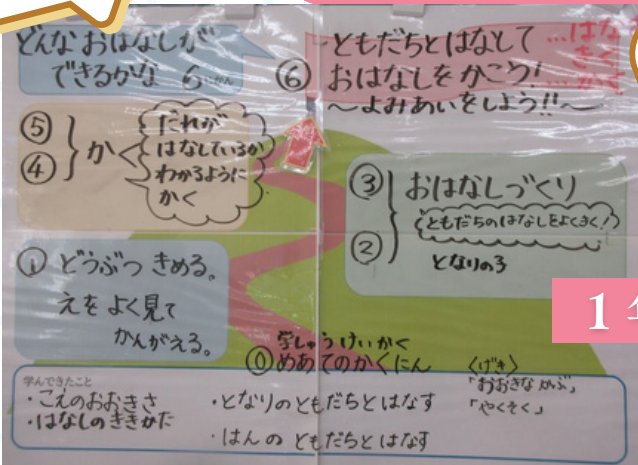 どんなおはなしが
できるかな 6じかん
…はな
きく
かす
ともだちとはなして
⑥ おはなしをかこう!
~よみあいをしよう!!~
⑤
④
かく
だれが
はなしているか
わかるように
かく
③ おはなしづくり
ともだちのはなしをよくきく!
②
となりの子
① どうぶつ きめる。
えを よく見て
かんがえる。
学しゅうけいかく
⓪ めあてのかくにん
学んできたこと
・こえのおおきさ
・はなしのききかた
・となりのともだちとはなす
・はんの ともだちとはなす
〈げき〉
「おおきなかぶ」
「やくそく」
1